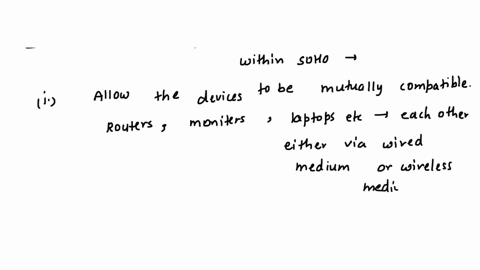 within SOHO →
(i.) Allow the devices to be mutually compatible.
Routers, moniters, laptops etc → each other
either via wired
medium or wireless
medi